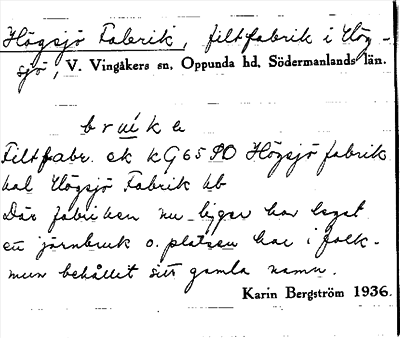 Högsjö Fabrik, filtfabrik i Hög-
sjö, V. Vingåkers sn, Oppunda hd, Södermanlands län.
bruke
Filtfabr. ek kG65SO Högsjö fabrik
hal Högsjö Fabrik hb
Där fabriken nu ligger har legat
ett järnbruk o. platsen har i folk-
mun behållit sitt gamla namn.
Karin Bergström 1936.